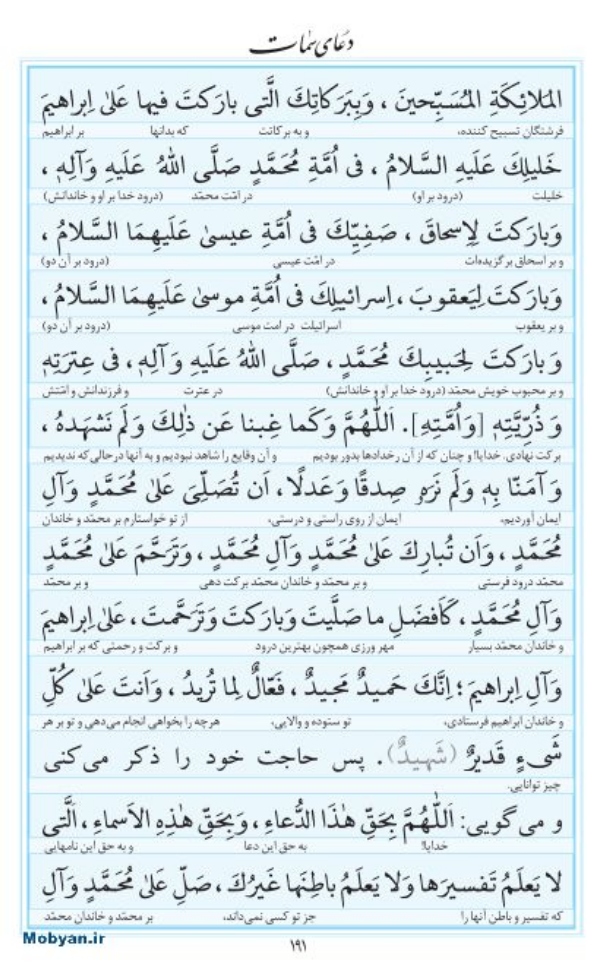 دعای سمات
المَلائِكَةِ المُسَبِّحینَ ، وَبِبَرَكاتِكَ الَّتی بارَكتَ فیها عَلیٰ اِبراهیمَ
فرشتگان تسبیح کننده، و به برکاتت که بدانها بر ابراهیم
خَلیلِكَ عَلَیهِ السَّلامُ ، فی اُمَّةِ مُحَمَّدٍ صَلَّی اللّٰهُ عَلَیهِ وَآلِهِ ،
خلیلت (درود بر او) در امّت محمّد (درود خدا بر او و خاندانش)
وَبارَكتَ لِاِسحاقَ ، صَفِیِّكَ فی اُمَّةِ عیسیٰ عَلَیهِمَا السَّلامُ ،
و بر اسحاق برگزیده‌ات در امّت عیسی (درود بر آن دو)
وَبارَكتَ لِیَعقوبَ ، اِسرائیلِكَ فی اُمَّةِ موسیٰ عَلَیهِمَا السَّلامُ ،
و بر یعقوب اسرائیلت در امت موسی (درود بر آن دو)
وَ بارَكتَ لِحَبیبِكَ مُحَمَّدٍ ، صَلَّی اللّٰهُ عَلَیهِ وَ آلِهِ ، فی عِترَتِهِ
و بر محبوب خویش محمّد (درود خدا بر او و خاندانش) در عترت و فرزندانش و امّتش
وَ ذُرِّیَّتِهِ [وَاُمَّتِهِ]. اَللّٰهُمَّ وَكَما غِبنا عَن ذٰلِكَ وَلَم نَشهَدهُ ،
برکت نهادی. خدایا! و چنان که از آن رخدادها بدور بودیم و آن وقایع را شاهد نبودیم و به آنها درحالی‌که ندیدیم
وَ آمَنّا بِهِ وَلَم نَرَهُ صِدقًا وَعَدلًا ، اَن تُصَلِّیَ عَلیٰ مُحَمَّدٍ وَآلِ
ایمان آوردیم، ایمان از روی راستی و درستی، از تو خواستارم بر محمّد و خاندان
مُحَمَّدٍ ، وَاَن تُبارِكَ عَلیٰ مُحَمَّدٍ وَآلِ مُحَمَّدٍ ، وَتَرَحَّمَ عَلیٰ مُحَمَّدٍ
محمّد درود فرستی و بر محمّد و خاندان محمّد برکت دهی و بر محمّد
وَآلِ مُحَمَّدٍ ، كَاَفضَلِ ما صَلَّیتَ وَبارَكتَ وَتَرَحَّمتَ ، عَلیٰ اِبراهیمَ
و خاندان محمّد بسیار مهر ورزی همچون بهترین درود و برکت و رحمتی که بر ابراهیم
وَآلِ اِبراهیمَ ؛ اِنَّكَ حَمیدٌ مَجیدٌ ، فَعّالٌ لِما تُریدُ ، وَاَنتَ عَلیٰ كُلِّ
و خاندان ابراهیم فرستادی، تو ستوده و والایی، هرچه را بخواهی انجام می‌دهی و تو بر هر
شَیءٍ قَدیرٌ (شَهیدٌ). پس حاجت خود را ذکر می‌کنی
چیز توانایی.
و می گویی: اَللّٰهُمَّ بِحَقِّ هٰذَا الدُّعاءِ ، وَبِحَقِّ هٰذِهِ الاَسماءِ ، اَلَّتی
خدایا! به حق این دعا و به حق این نامهایی
لا یَعلَمُ تَفسیرَها وَلا یَعلَمُ باطِنَها غَیرُكَ ، صَلِّ عَلیٰ مُحَمَّدٍ وَآلِ
که تفسیر و باطن آنها را جز تو کسی نمی‌داند، بر محمّد و خاندان محمّد
۱۹۱
Mobyan.ir